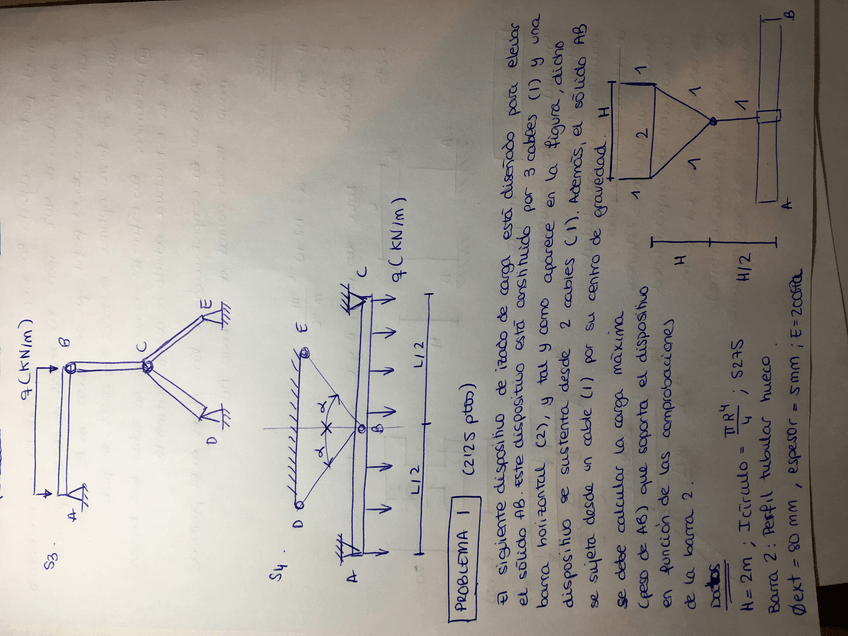 S3.
q (KN/m)
A
B
C
D
E
S4.
D
E
α
α
A
B
C
q (KN/m)
L/2
L/2
PROBLEMA 1 (2'25 ptos)
El siguiente dispositivo de izado de carga está diseñado para elevar
el sólido AB. Este dispositivo está constituido por 3 cables (1) y una
barra horizontal (2), y tal y como aparece en la figura, dicho
dispositivo se sustenta desde 2 cables (1). Además, el sólido AB
se sujeta desde un cable (1) por su centro de gravedad.
Se debe calcular la carga máxima
(peso de AB) que soporta el dispositivo
en función de las comprobaciones
de la barra 2.
Datos
H = 2m ; Icírculo = πR⁴/4 ; S275
Barra 2: Perfil tubular hueco.
Øext = 80 mm, espesor = 5mm ; E = 200GPa
H
1
1
2
1
1
1
H
H/2
A
B